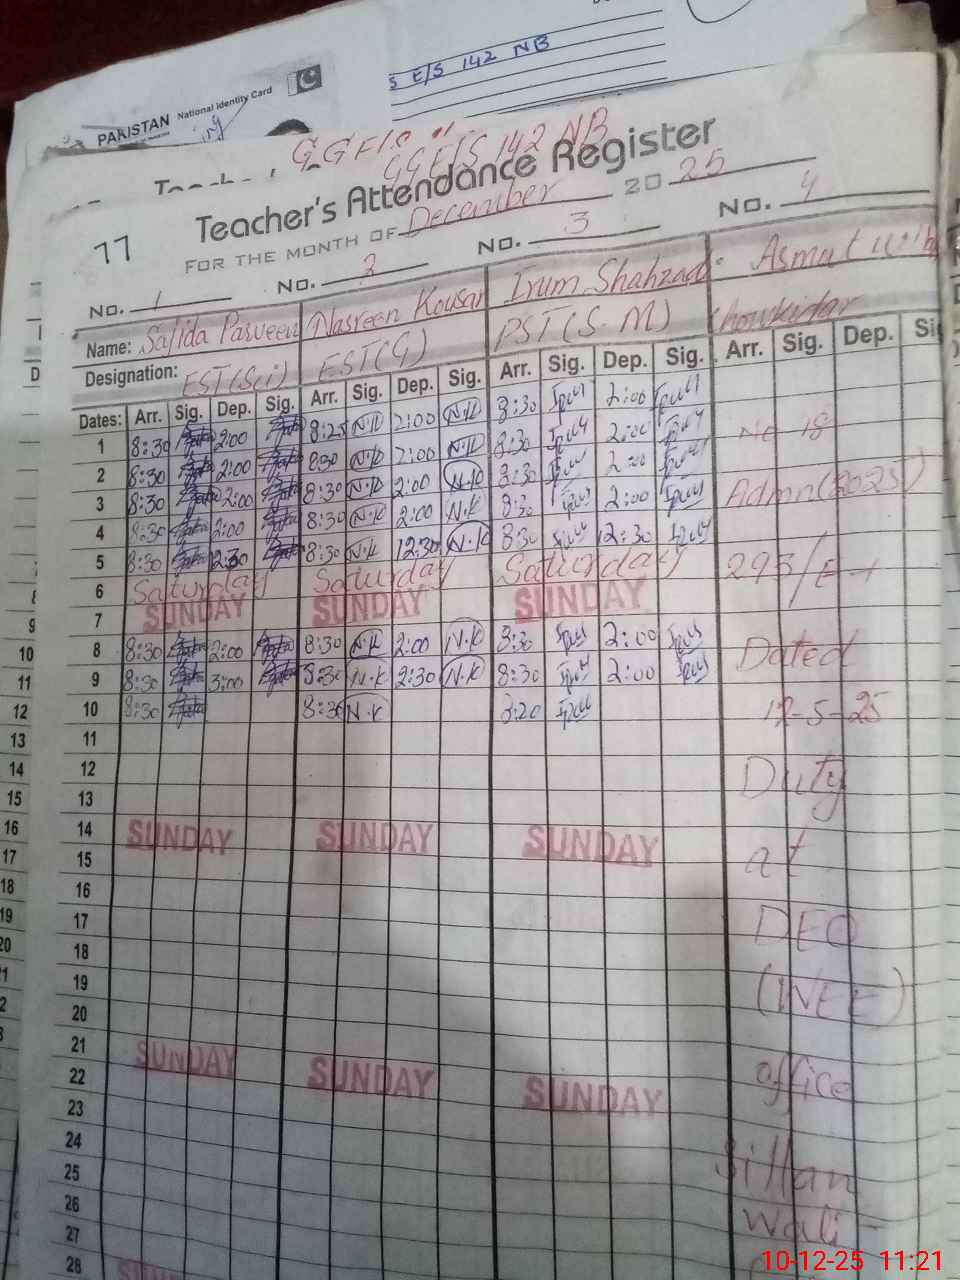 S E/S 142 NB
PAKISTAN National Identity Card
GGE/S
GGE/S 142 NB
Teacher's Attendance Register
77
FOR THE MONTH OF December 2025
No. 1 No. 2 No. 3 No. 4
Name: Sajida Parveen Nasreen Kousar Irum Shahzadi Asmat
Designation: EST(Sci) EST(G) PST(S.M) Chowkidar
Dates: Arr. Sig. Dep. Sig. Arr. Sig. Dep. Sig. Arr. Sig. Dep. Sig. Arr. Sig. Dep. Sig
1 8:30 2:00 8:25 N.K 2:00 N.K 8:30 2:00
2 8:30 2:00 8:30 N.K 2:00 N.K 8:30 2:00 No 18
3 8:30 2:00 8:30 N.K 2:00 N.K 8:30 2:00
4 8:30 2:00 8:30 N.K 2:00 N.K 8:30 2:00 Admn(2025)
5 8:30 12:30 8:30 N.K 12:30 N.K 8:30 12:30
6 Saturday Saturday Saturday 293/E-I
7 SUNDAY SUNDAY SUNDAY
8 8:30 2:00 8:30 N.K 2:00 N.K 8:30 2:00 Dated
9 8:30 3:00 8:30 N.K 2:30 N.K 8:30 2:00
10 8:30 8:30 N.K 8:20 -5-25
11
12 Duty
13
14 SUNDAY SUNDAY SUNDAY
15 at
16
17 DEO
18
19 (WEE)
20
21 SUNDAY SUNDAY SUNDAY
22 office
23
24
25 Sillan
26 Wali
27
28 SUNDAY
10-12-25 11:21